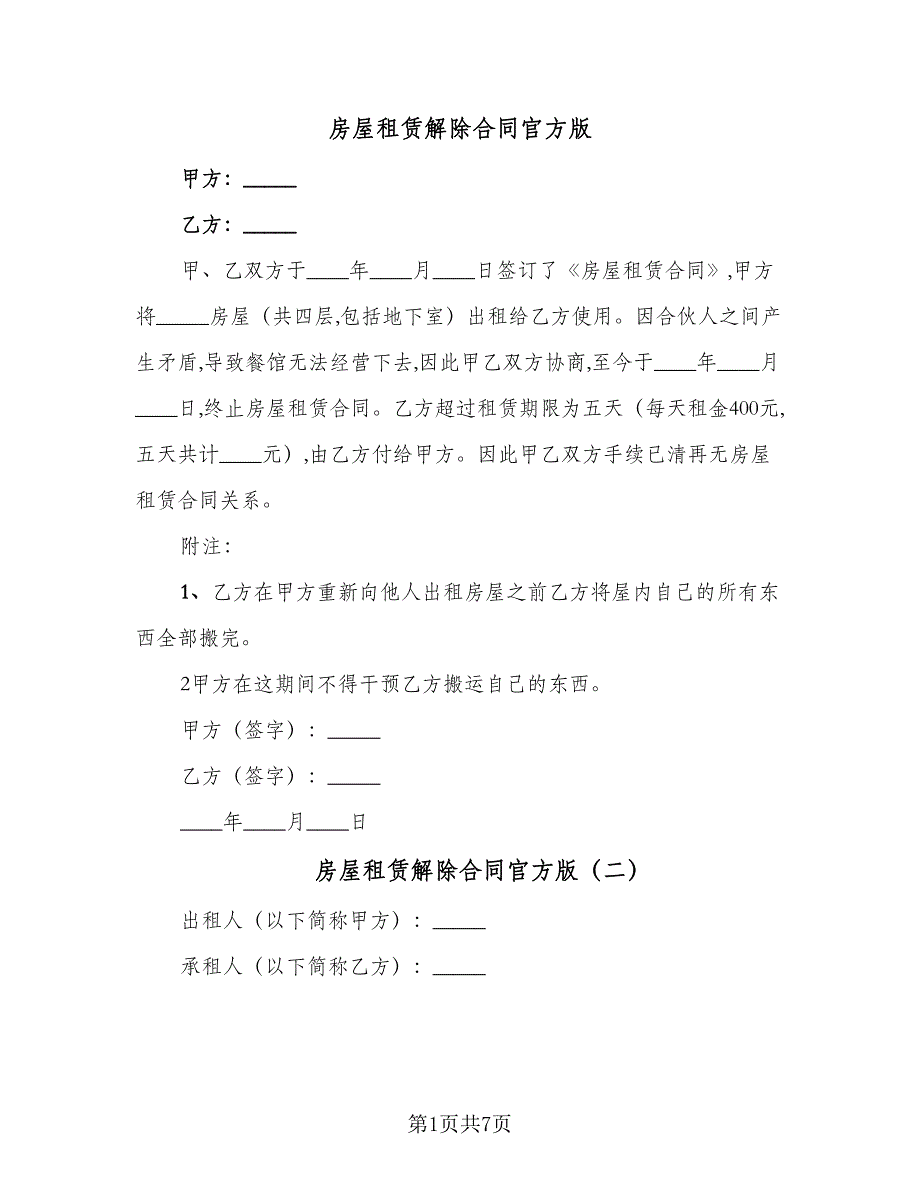 房屋租赁解除合同官方版
甲方：_____
乙方：_____
甲、乙双方于____年____月____日签订了《房屋租赁合同》,甲方
将_____房屋（共四层,包括地下室）出租给乙方使用。因合伙人之间产
生矛盾,导致餐馆无法经营下去,因此甲乙双方协商,至今于____年____月
____日,终止房屋租赁合同。乙方超过租赁期限为五天（每天租金400元,
五天共计____元）,由乙方付给甲方。因此甲乙双方手续已清再无房屋
租赁合同关系。
附注：
1、乙方在甲方重新向他人出租房屋之前乙方将屋内自己的所有东
西全部搬完。
2甲方在这期间不得干预乙方搬运自己的东西。
甲方（签字）：_____
乙方（签字）：_____
____年____月____日
房屋租赁解除合同官方版（二）
出租人（以下简称甲方）：_____
承租人（以下简称乙方）：_____
第1页共7页